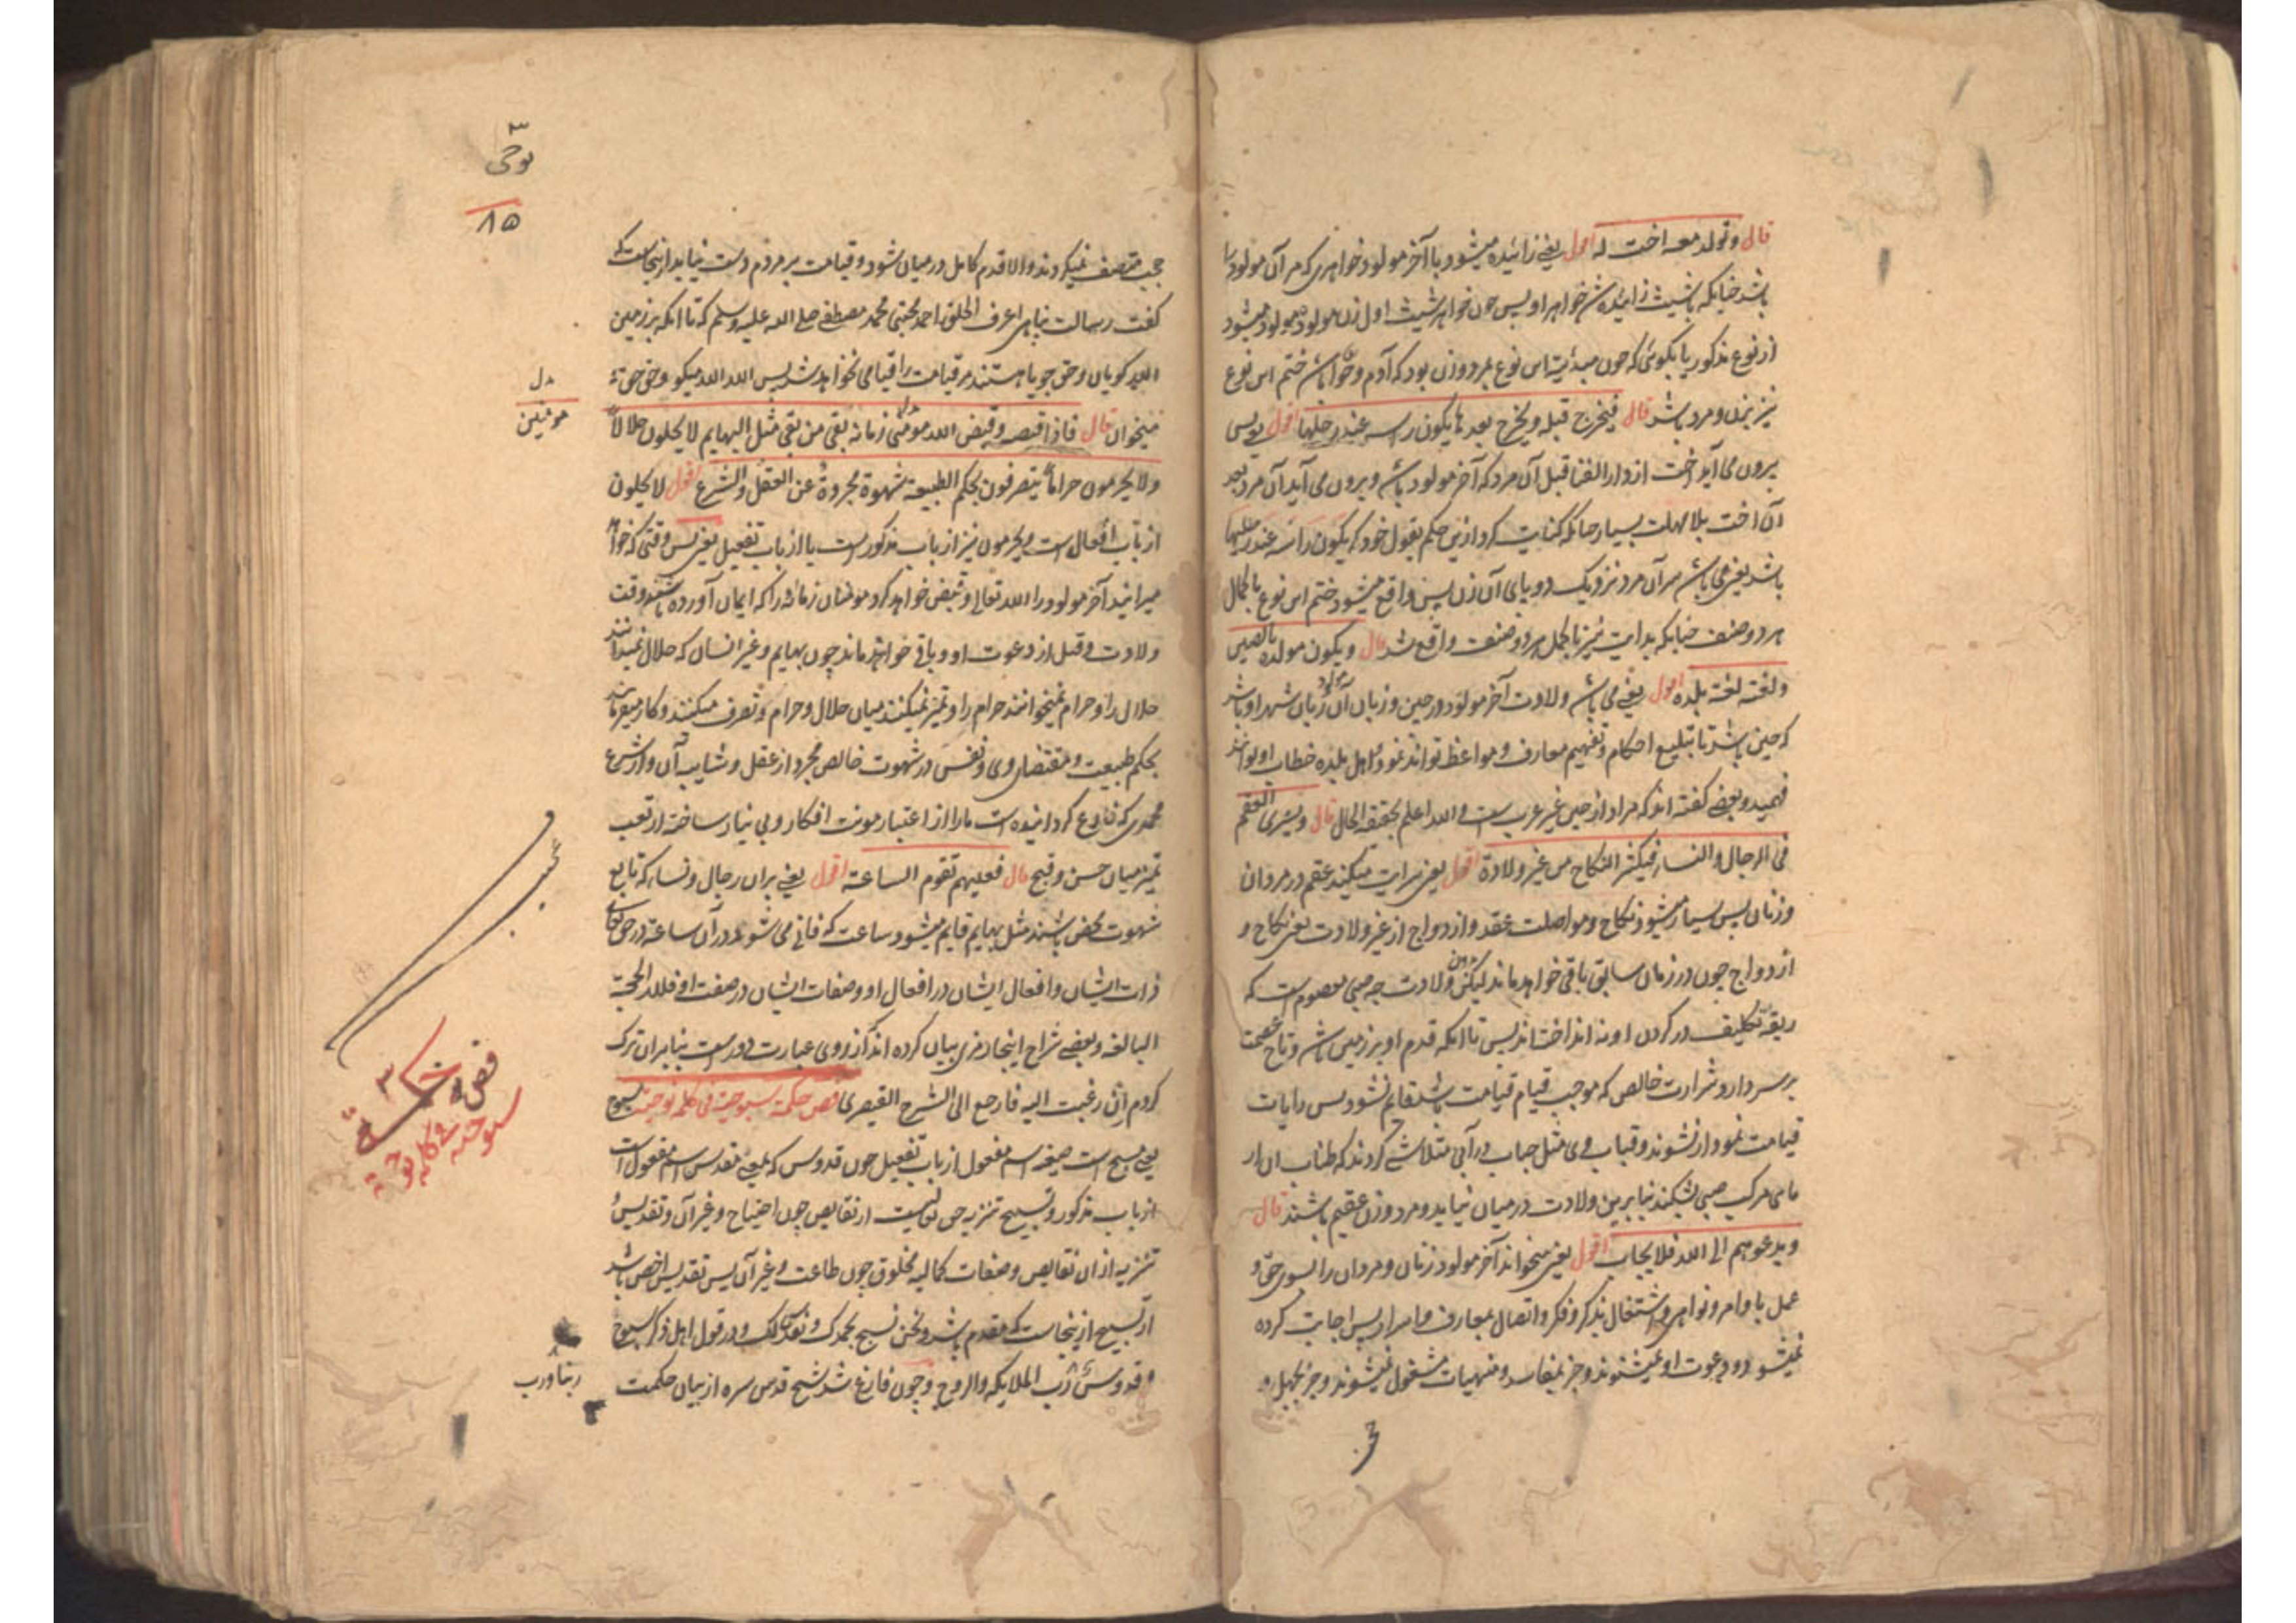 قال وتولد معه اخت له اقول یعنی زائیده میشود با آخر مولود خواهری که مر آن مولود را
باشد چنانکه با شیث زائیده شد خواهر او پس چون خواهر شیث اول زن مولوده مولود میشود
از نوع مذکور یا بگوئی که چون مبدئیة این نوع بمرد و زن بود که آدم و حوا باشد ختم این نوع
نیز بزن و مرد باشد قال فیخرج قبله ویخرج بعدها یکون راسه عند رجلیها اقول پس
بیرون می آید اخت از دار الفنا قبل آن مرد که آخر مولود باشد و بیرون می آید آن مرد بعد
آن اخت بلا مهلت بسیار چنانکه کنایت کرد ازین حکم بقول خود که یکون راسه عند رجلیها
باشد یعنی می باشد سر آن مرد نزدیک دو پای آن زن پس واقع میشود ختم این نوع باکمال
هر دو صنف چنانکه بدایت نیز باکمل هر دو صنف واقع شد قال ویکون مولده بالصین
ولغته لغة بلده اقول یعنی می باشد ولادت آخر مولود در چین و زبان آن مولود زبان شهر او باشد
که چین باشد تا بتبلیغ احکام و تفهیم معارف و مواعظ تواند نمود و اهل بلده خطاب او توانند
فهمید و بعضی گفته اند که مراد از چین غیر عرب است والله اعلم بحقیقة الحال قال ویسری العقم
فی الرجال والنساء فیکثر النکاح من غیر ولادة اقول یعنی سرایت میکند عقم در مردان
و زنان پس بسیار میشود نکاح و مواصلت عقد و ازدواج از غیر ولادت یعنی نکاح و
ازدواج چون در زمان سابق باقی خواهد ماند لیکن بدون ولادت چه صبی معصوم است که
ربقه تکلیف در گردن او نه انداخته اند پس تا آنکه قدم او بر زمین باشد و تاج عصمت
بر سر دارد شرارت خالص که موجب قیام قیامت باشد قائم نشود پس رایات
قیامت نمودار نشوند و قباب وی مثل حباب در آبی متلاشی گردند که طناب آن از
ما می مرک صبی شکند بنابرین ولادت در میان نیاید و مرد و زن عقیم باشند قال
ویدعوهم الی الله فلا یجاب اقول یعنی میخواند آخر مولود زنان و مردان را بسوی حق و
عمل باوامر و نواهی و اشتغال بذکر و فکر و اتصال بمعارف و اسرار پس اجابت کرده
نمیشود و دعوت او نمیشنوند و جز بمفاسد و منهیات مشغول نمیشوند و جز بجهل و
نوحی
۳
۸۵
حجب متصف نمیگردند و الا قدم کامل در میان شود و قیامت بر مردم دست نیابد ازینجاست که
گفت رسالت پناهی اعرف الخلق احمد مجتبی محمد مصطفی صلی الله علیه وسلم که تا آنکه بر زمین
الله گویان و حق جویا هستند مر قیامت را قیامی نخواهد شد پس الله الله میگو و حق حق
میخوان قال فاذا قبضه وقبض الله مؤمنی زمانه بقی من بقی مثل البهایم لا یحلون حلالا
ولا یحرمون حراما یتصرفون بحکم الطبیعة شهوة مجردة عن العقل والشرع اقول لا یحلون
از باب افعال است و یحرمون نیز از باب مذکور است یا از باب تفعیل یعنی پس وقتی که خواهد
میرانید آخر مولود را الله تعالی و قبض خواهد کرد مومنان زمانه را که ایمان آورده باشند وقت
ولادت و قبل از دعوت او و باقی خواهند ماند چون بهایم و غیر انسان که حلال نمیدانند
حلال را و حرام نمیخوانند حرام را و تمیز نمیکنند میان حلال و حرام و تصرف میکنند و کار میفرمایند
بحکم طبیعت و مقتضای وی و نفس در شهوت خالص مجرد از عقل و شایبه آن و از شرع
محمدی که شارع گردانیده است ما را از اعتبار مونت افکار و بی نیاز ساخته از تعب
تمیز میان حسن و قبح قال فعلیهم تقوم الساعة اقول یعنی بران رجال و نساء که تابع
شهوت محض باشند مثل بهایم قایم میشود ساعت که فانی می شوند در آن ساعة در حق تعالی
ذرات ایشان و افعال ایشان در افعال او و صفات ایشان در صفت او فلله الحجة
البالغة و بعضی شراح اینجا رمزی بیان کرده اند که از روی عبارت دور است بنابران ترک
کردم ان رغبت الیه فارجع الی الشرح القیصری فص حکمة سبوحیة فی کلمة نوحیة سبوح
یعنی مسبح است صیغه اسم مفعول از باب تفعیل چون قدوس که بمعنی مقدس اسم مفعول است
از باب مذکور و تسبیح تنزیه حق تعالیست از نقایص چون احتیاج و غیر آن و تقدیس
تنزیه از ان نقایص و صفات کمالیه مخلوق چون طاعت و غیر آن پس تقدیس اخص باشد
از تسبیح ازینجاست که مقدم باشد ونحن نسبح بحمدک ونقدس لک و در قول اهل ذکر سبوح
قدوس رب الملایکة والروح و چون فارغ شد شیخ قدس سره از بیان حکمت
مومنین
فص حکمة
سبوحیة فی کلمة نوحیة
ربنا ورب